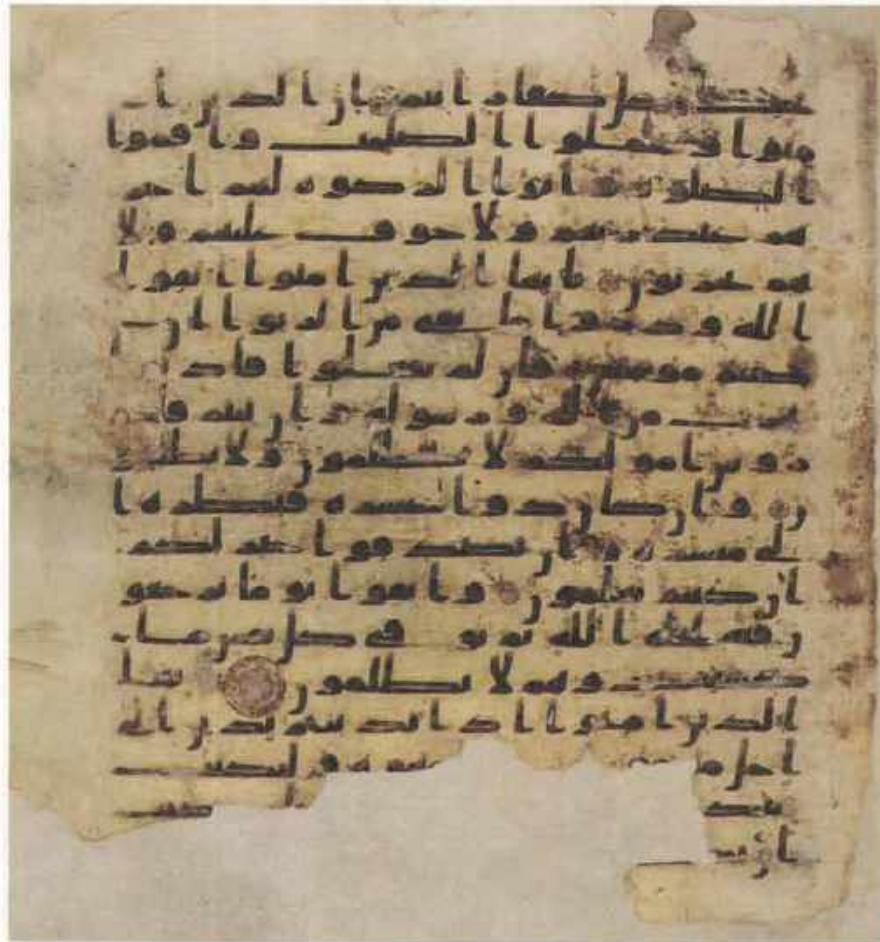 يحب كل كفار اثيم ان الذين ا
منوا وعملوا الصلحت واقموا
الصلوة واتوا الزكوة لهم اجر
هم عند ربهم ولا خوف عليهم ولا
هم يحزنون يايها الذين امنوا اتقوا
الله وذروا ما بقى من الربوا ان
كنتم مومنين فان لم تفعلوا فاذنوا
بحرب من الله ورسوله وان تبتم فلكم
روس امولكم لا تظلمون ولا تظلمو
ن وان كان ذو عسرة فنظرة ا
لى ميسرة وان تصدقوا خير لكم
ان كنتم تعلمون واتقوا يوما ترجعو
ن فيه الى الله ثم توفى كل نفس ما
كسبت وهم لا يظلمون يايها
الذين امنوا اذا تداينتم بدين الى
اجل وليكتب
ان